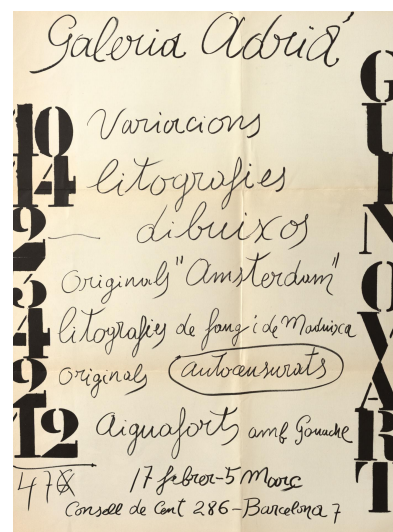 Galeria Adrià
10 Variacions
14 litografies
2 dibuixos
3 Originals "Amsterdam"
4 litografies de fang i de Maduixa
2 Originals autocensurats
12 Aiguaforts amb Gouache
47
17 febrer-5 Març
Consell de Cent 286-Barcelona 7
GUINOVART